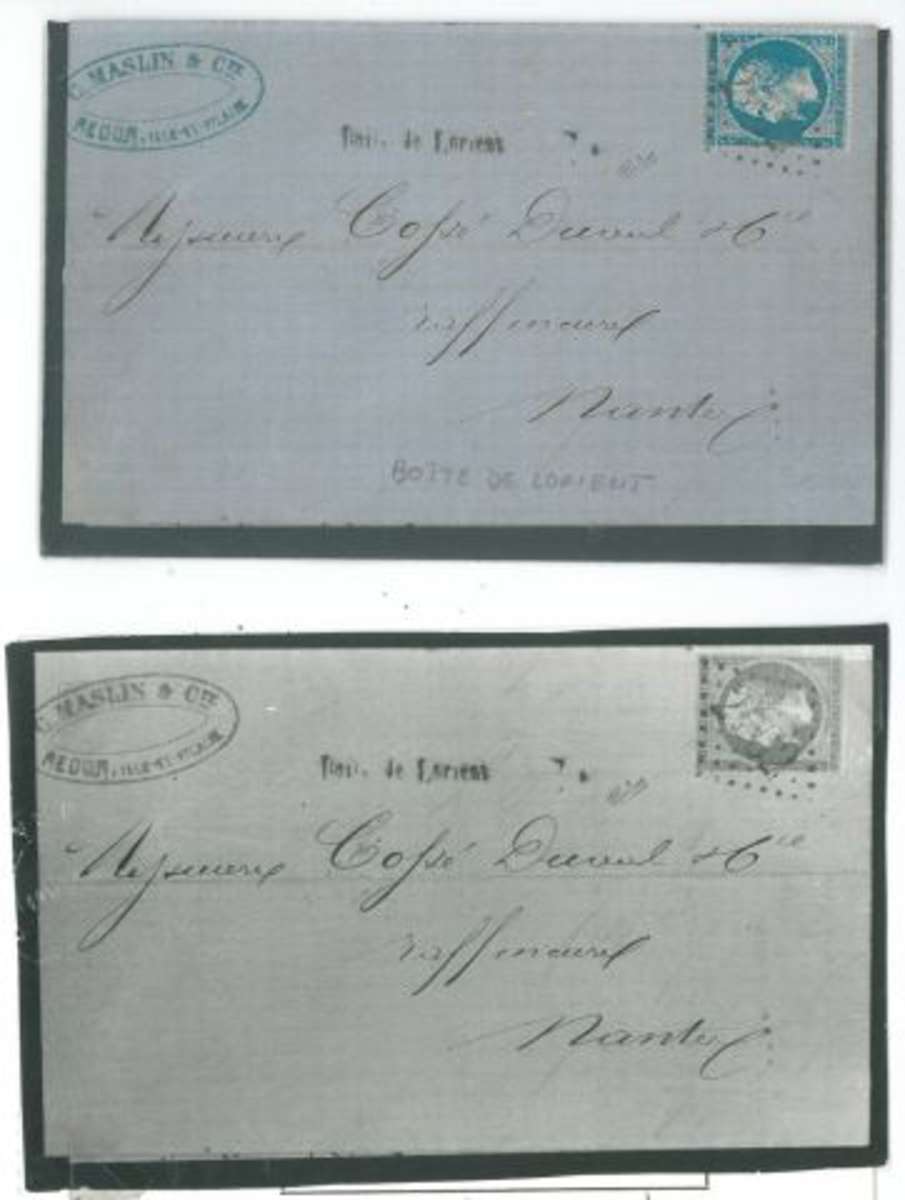 C. MASLIN & Cie
REDON, ILLE-ET-VILAINE
de Lorient
Messieurs Cossé Duval & Cie
raffineurs
Nantes
BOITE DE LORIENT
C. MASLIN & Cie
REDON, ILLE-ET-VILAINE
de Lorient
Messieurs Cossé Duval & Cie
raffineurs
Nantes